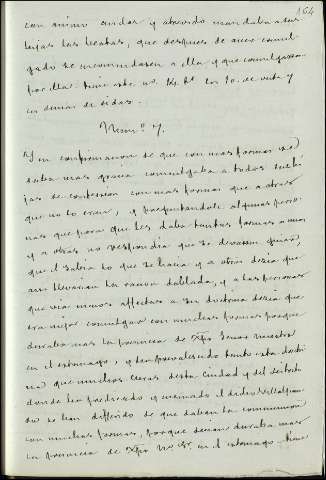 164
con animo
y mandaba a sus
hijas las beatas, que despues de aver comul-
gado se encomendasen a ella y que comulgasen
por ella: tiene este nº
Num.º 7.
Y en confirmacion de que con mas formas se
daba mas gracia comulgaba a todos sus hi-
jas de confesion con mas formas que a otros
que no lo eran, y preguntandole algunas perso-
nas que para que les daba tantas formas a unos
y a otros no respondia que se dexasen guiar,
que el sabia lo que se hacia y a otros decia que
assi llevarian la racion doblada, y a las personas
que via menos affectas a su doctrina decia que
era mejor comulgar con muchas formas porque
duraba mas la presencia de Xpo Señor nuestro
en el estomago, y ha prevalescido tanto esta doctri-
na que muchos curas desta Ciudad y del distrito
donde ha predicado y enseñado el dicho Villalpan-
do se han de que daban la communion
con muchas formas, porque decian duraba mas
la presencia de Xpo nro Sr. en el estomago: tiene